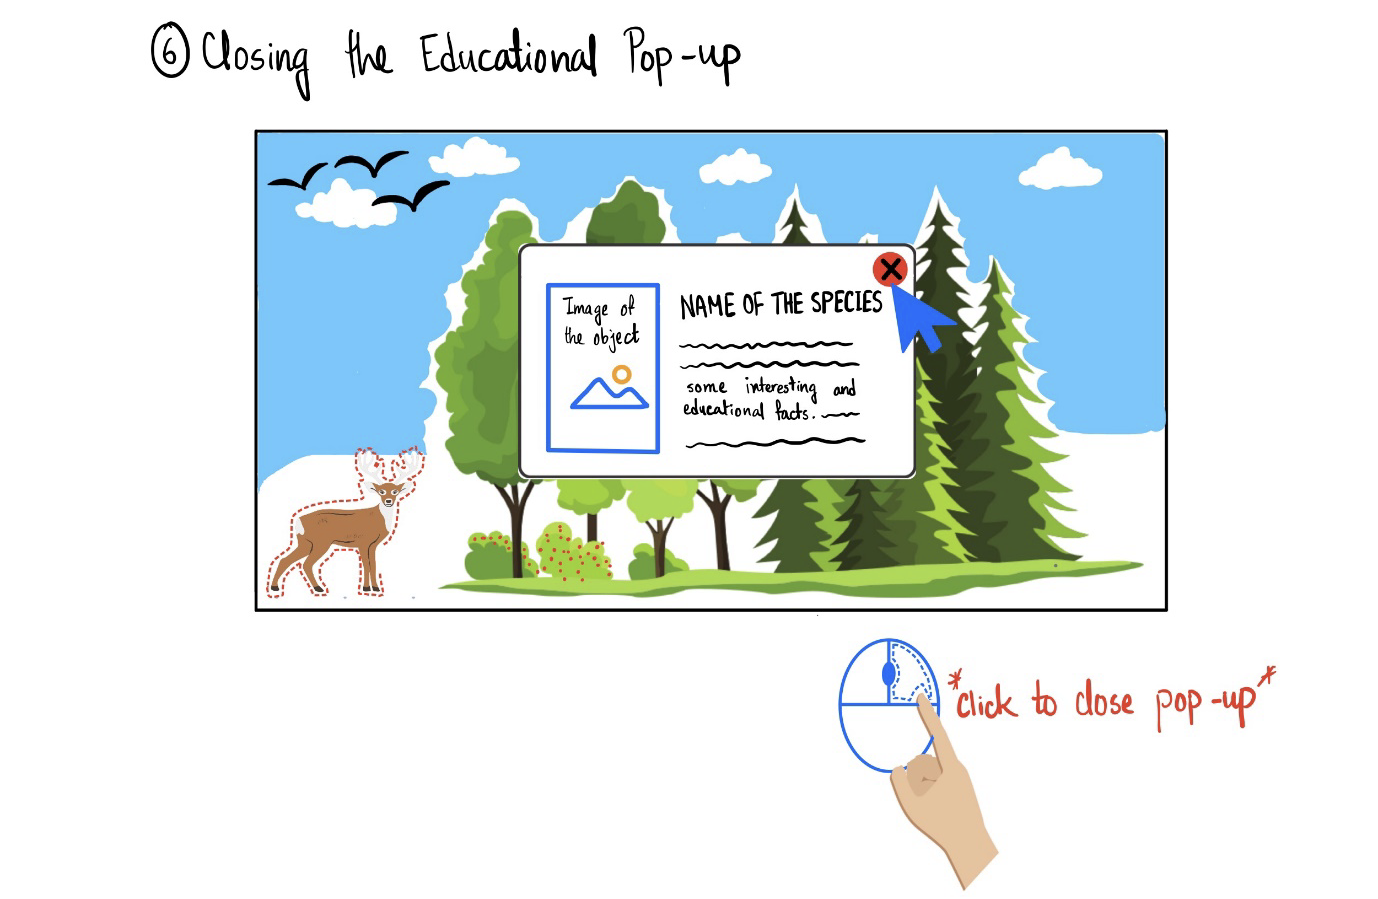 6 Closing the Educational Pop-up
Image of
the object
NAME OF THE SPECIES
some interesting and
educational facts.
*click to close pop-up*